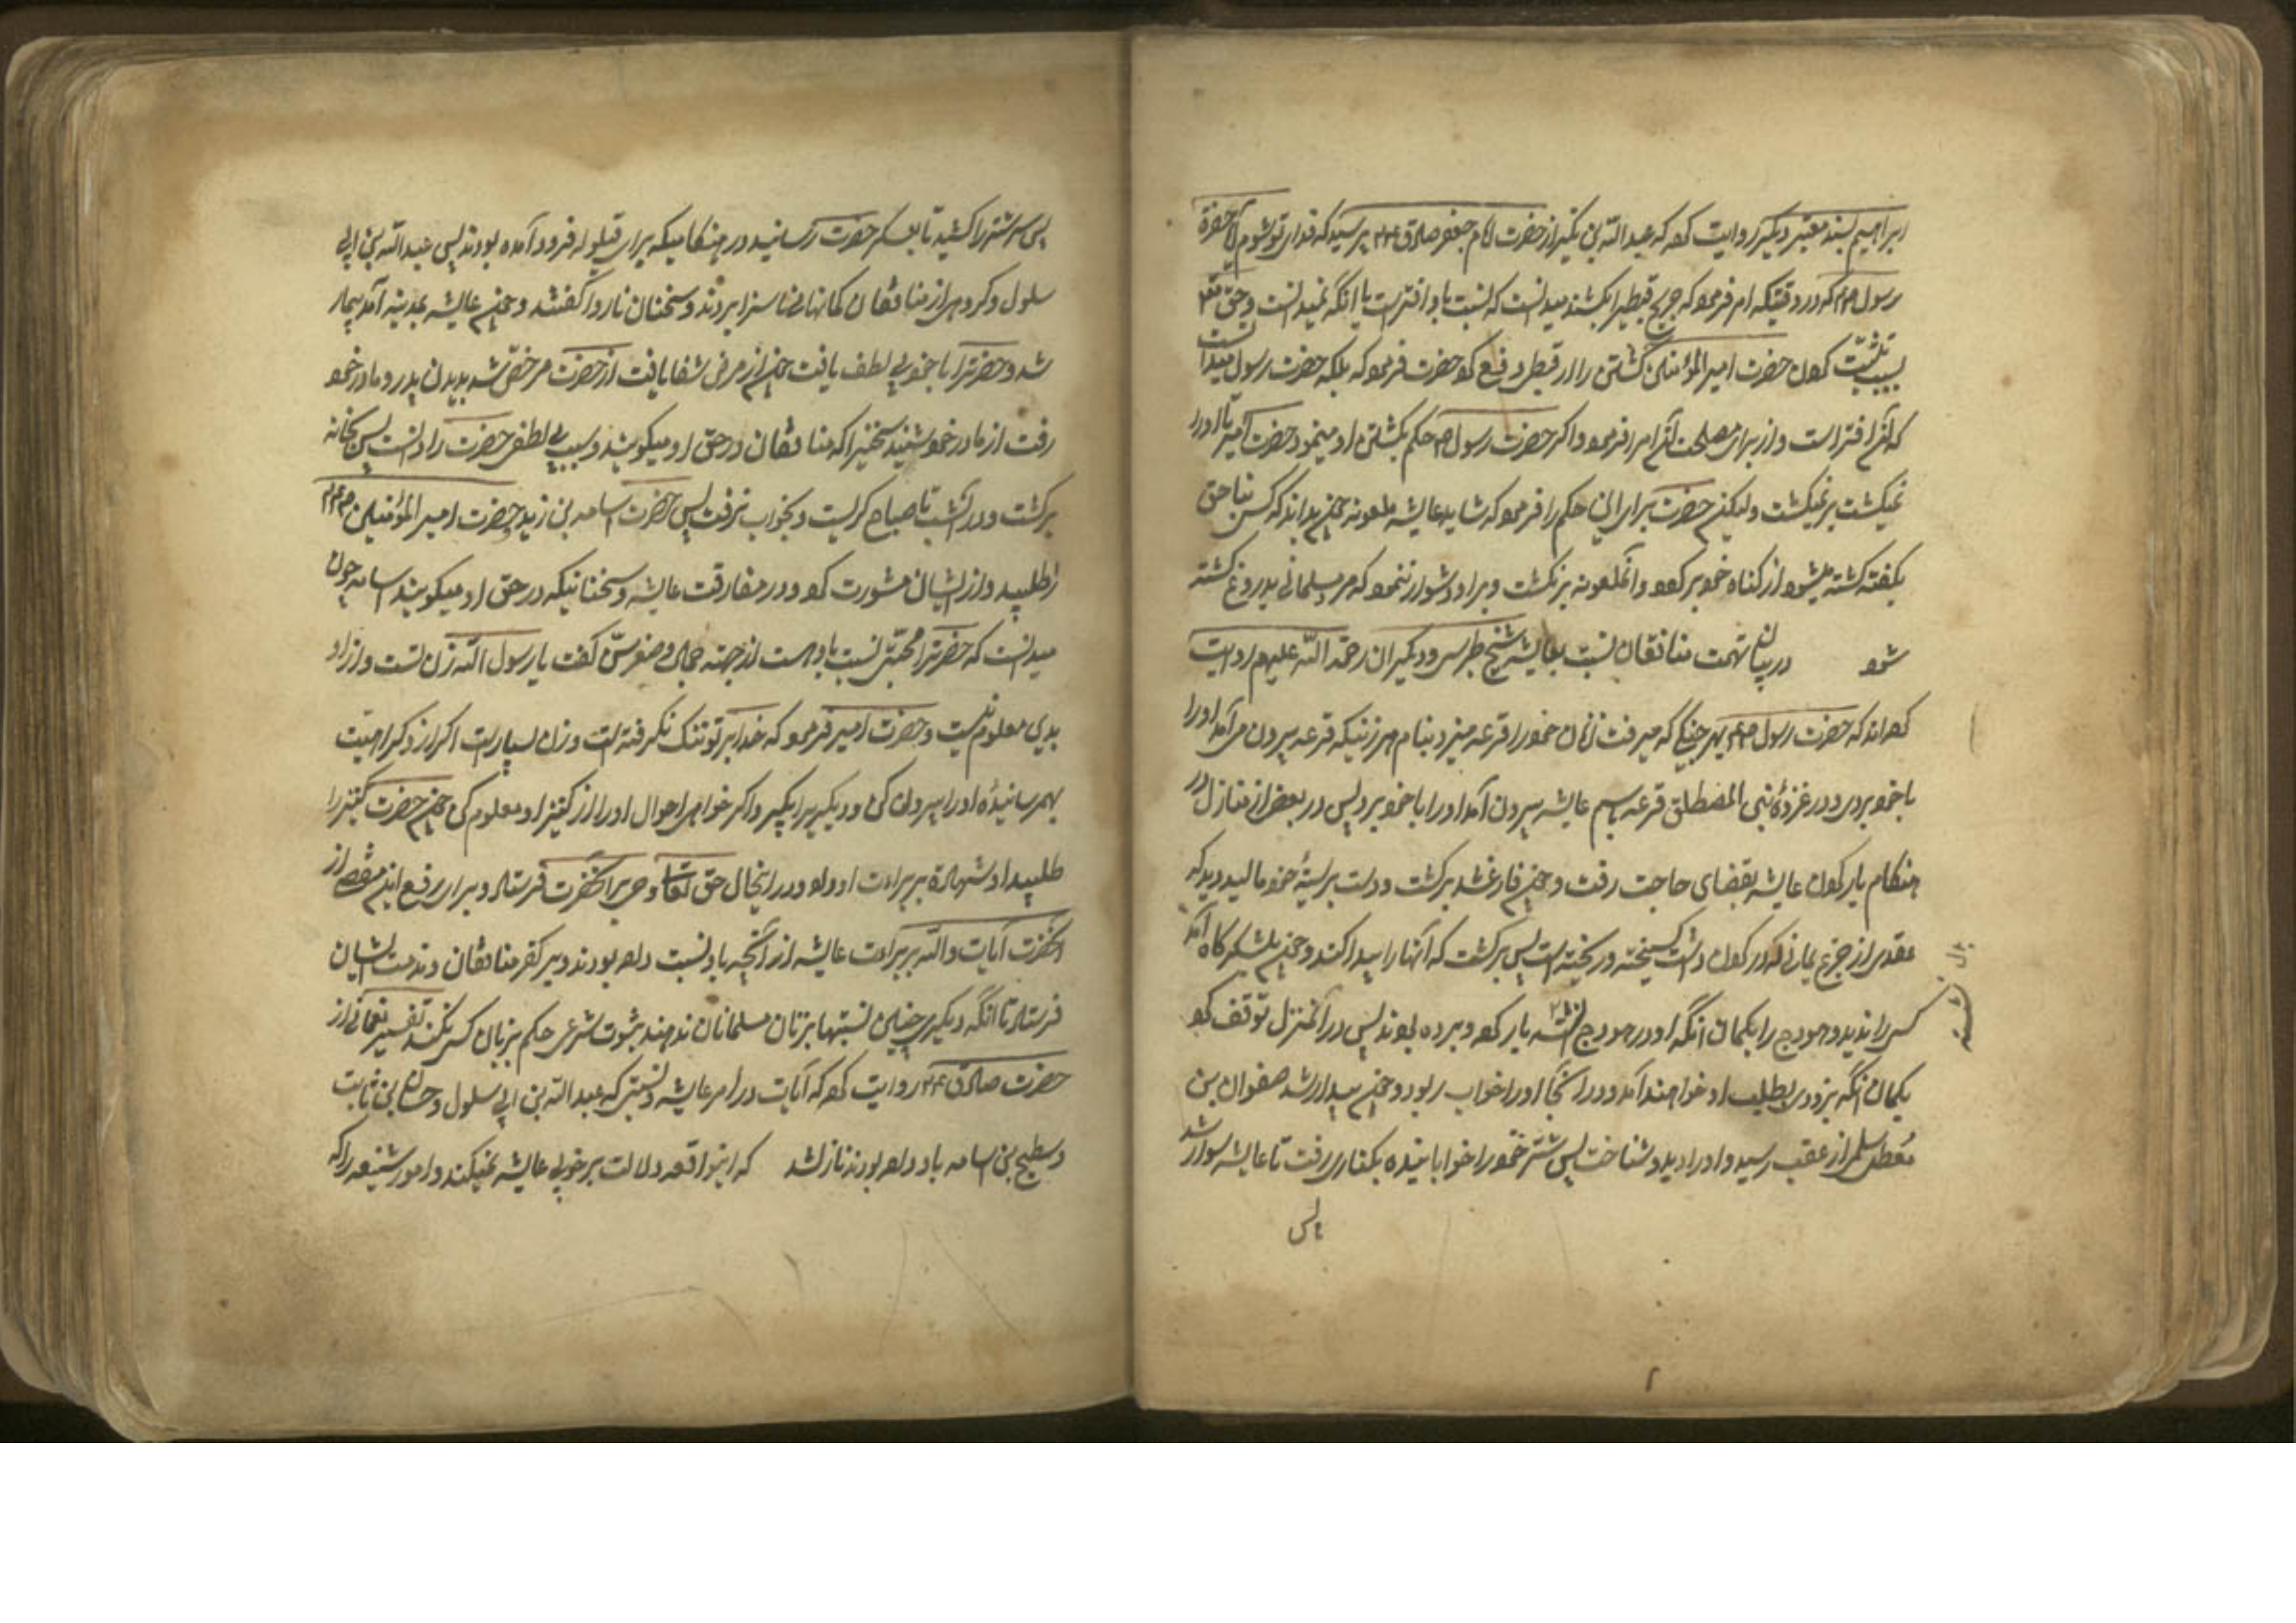 ابراهیم بسند معتبر دیگر روایت کرده که عبدالله بن بکیر از حضرت امام جعفر صادق پرسید که فدای تو شوم آیا حضرة
رسول که در وقتیکه امر فرمود که جریح قبطیرا بکشند میدانست که نسبت باو افتراست یا آنکه نمیدانست و حق
بسبب تثبت کردن حضرت امیر المؤمنین کشتن را از قبطی دفع کرد حضرت فرمود که بلکه حضرت رسول میدانست
که آن افتراست و از برای مصلحت آن امر را فرمود و اکر حضرت رسول حکم بکشتن او مینمود حضرت امیر تا او را
نمیکشت بر نمیکشت ولیکن حضرت برای این حکم را فرمود که شاید عایشه ملعونه چون بداند که کسی بناحق
بکفته کشته میشود از کناه خود بر کردد و آنملعونه بر نکشت و بر او دشوار ننمود که مرد مسلمانی بدروغ کشته
شود در بیان تهمت منافقان نسبت بعایشه شیخ طبرسی و دیکران رحمة الله علیهم روایت
کرده‌اند که حضرت رسول بهر جنگی که میرفت زنان خود را قرعه میزد بنام هر زنیکه قرعه بیرون می‌آمد او را
با خود بردی و در غزوهٔ بنی المصطلق قرعه باسم عایشه بیرون آمد او را با خود برد پس در بعض از منازل در
هنکام بار کردن عایشه بقضای حاجت رفت و چون فارغ شد برکشت و دست بر سینهٔ خود مالید دید که
عقدی از جزع یمانی که در کردن داشت کسیخته و ریخته است پس برکشت که آنها را پیدا کند و چون بلشکرکاه آمد
کسی را ندید و هودج را بکمان آنکه او در هودج است بار کرده و برده بودند پس در آنمنزل توقف کرد
بکمان آنکه بزودی بطلب او خواهند آمد و در آنجا او را خواب ربود و چون بیدار شد صفوان بن
معطل سلمی از عقب رسید و او را دید و شناخت پس شتر خود را خوابانیده بکناری رفت تا عایشه سوار شد
پس
پس سر شتر را کشید تا بعسکر حضرت رسانید در هنکامیکه برای قیلوله فرود آمده بودند پس عبدالله بن ابی
سلول و کروهی از منافقان کمانهای ناسزا بردند و سخنان ناروا کفتند و چون عایشه بمدینه آمد بیمار
شد و حضرترا با خود بی لطف یافت چون از مرض شفا یافت از حضرت مرخص شد بدیدن پدر و مادر خود
رفت از مادر خود شنید سخنیرا که منافقان در حق او میکویند و سبب بی لطفی حضرت را دانست پس بخانه
برکشت و در آنشب تا صباح کریست و بخواب نرفت پس حضرت اسامه بن زید و حضرت امیر المؤمنین
را طلبید و از ایشان مشورت کرد در مفارقت عایشه و سخنانیکه در حق او میکویند اسامه چون
میدانست که حضرترا محبتی نسبت باو هست از جهة جمال و صغر سن کفت یا رسول الله زن تست و از او
بدی معلوم نیست و حضرت امیر فرمود که خدا بر تو تنک نکرفته است و زنان بسیار است اکر از او کراهیت
بهم رسانیدهٔ او را بیرون کن و دیکریرا بکیر و اکر خواهی احوال او را از کنیز او معلوم کن چون حضرت کنیز را
طلبید او شهادة بر براءت او داد و در اینحال حق تعالی وحی بر آنحضرت فرستاد و برای رفع این غصه از
آنحضرت آیات داله بر براءت عایشه از آنچه باو نسبت داده بودند و بر کفر منافقان و مذمت ایشان
فرستاد تا آنکه دیکر چنین نسبتها بزنان مسلمانان ندهند و بثبوت شرعی حکم بزنای کسی نکنند تفسیر نعمانی از
حضرت صادق روایت کرده که آیات در امر عایشه و نسبتی که عبدالله بن ابی سلول و حسان بن ثابت
و مسطح بن اسامه باو داده بودند نازل شد که اینواقعه دلالت بر خوبی عایشه نمیکند و امور شنیعه را که